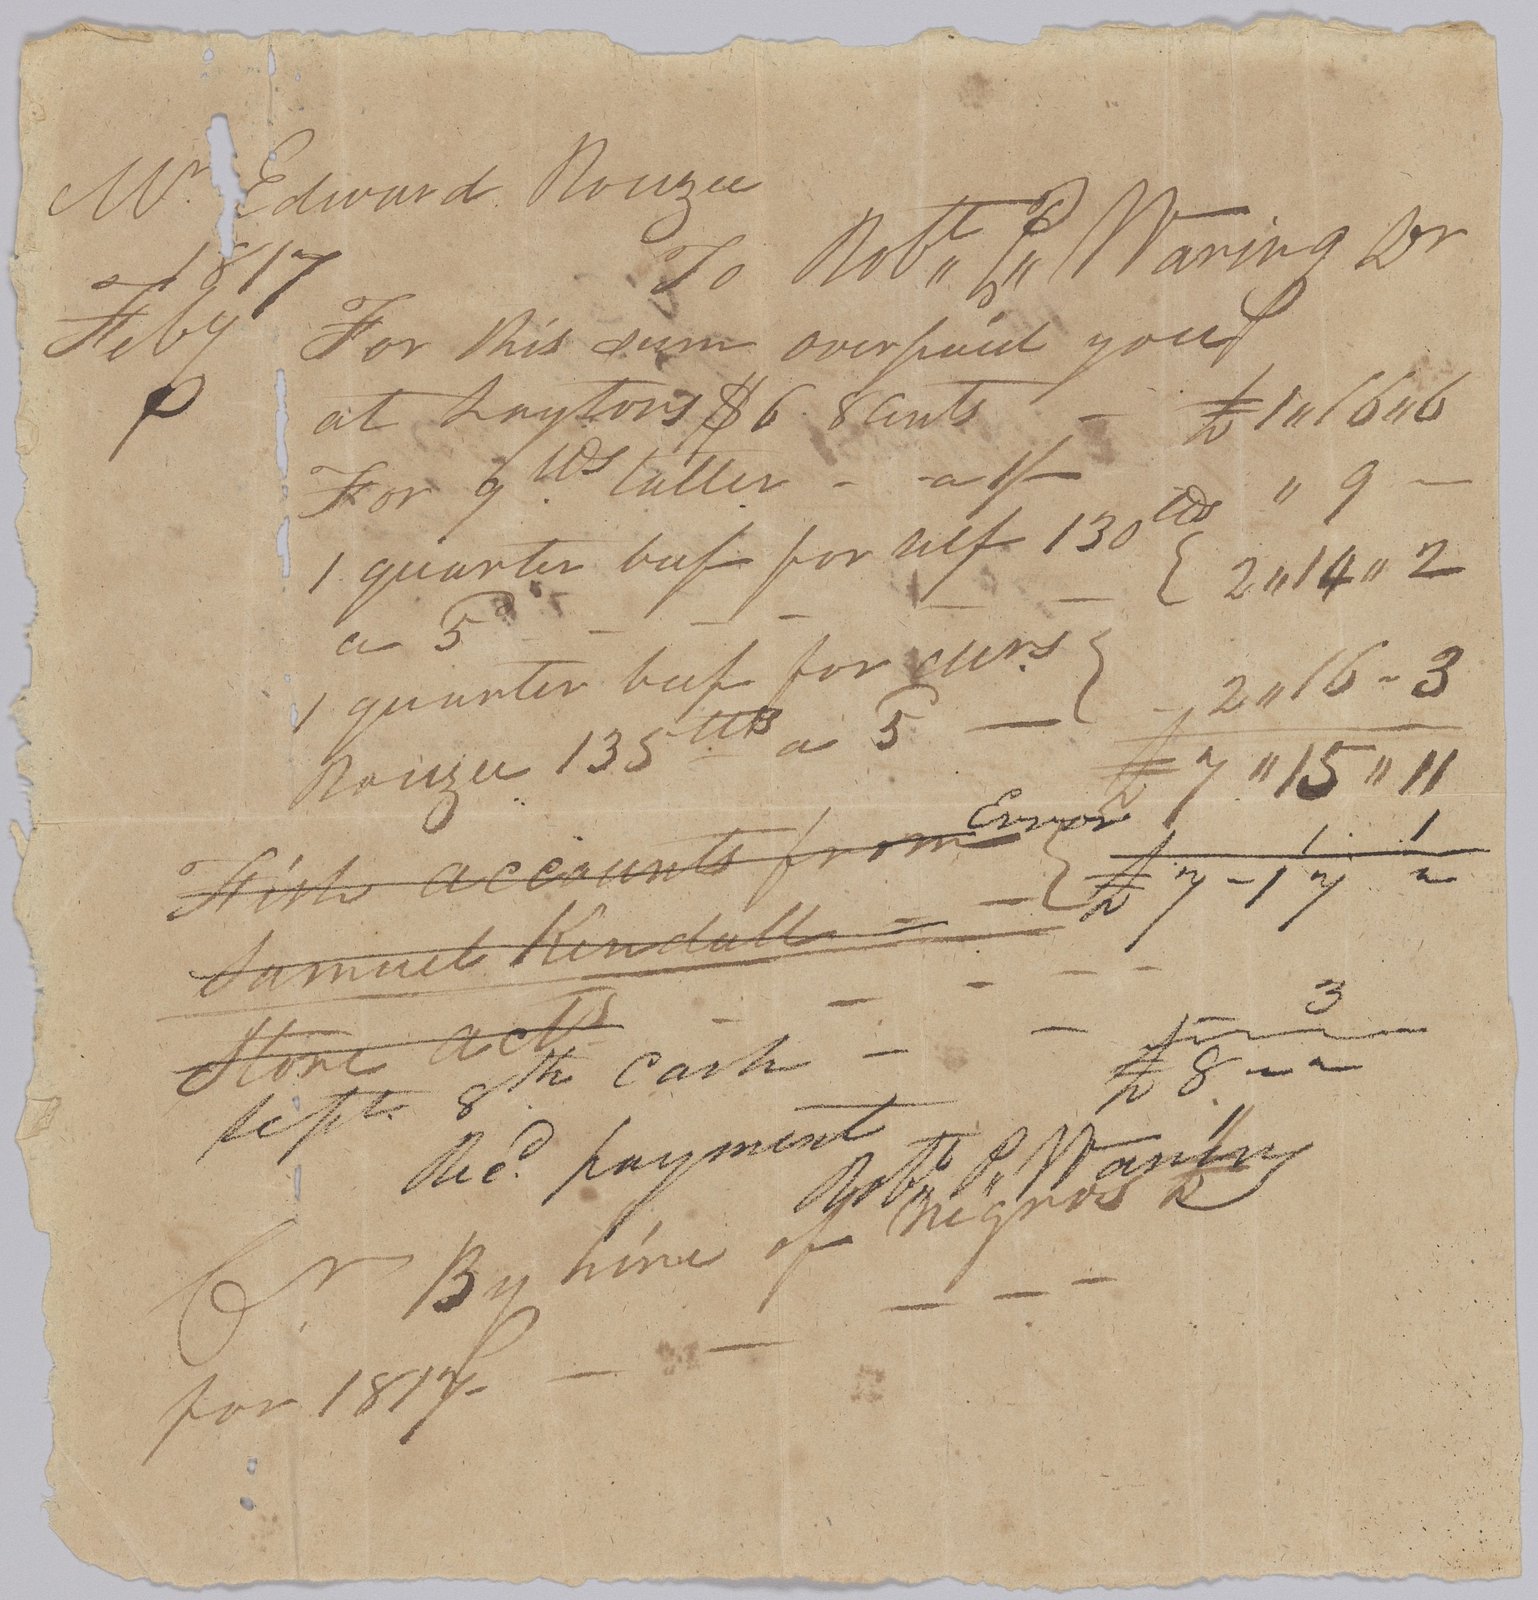 Mr. Edward Rouzee
To Robt. P. Waring Dr
1817
Feby For this sum overpaid you
at Laytons $6 8 cents - £ 1 " 16 " 6
For 9 lbs taller - a 1/- " 9 -
1 quarter beef for self 130 lbs
a 5d - - - - - { 2 " 14 " 2
1 quarter beef for Mrs
Rouzee 135 lbs a 5 - } 2 " 16 - 3
£ 7 " 15 " 11
Error 1 1
Fish accounts from - { £ 7 - 17 -
Samuel Kendall - -
Store acts - - - - -
3
Sept. 8th cash - - £ 8 - -
Recd. payment
Robt. P. Waring
Cr. By hire of negros
for 1817 - - - - -